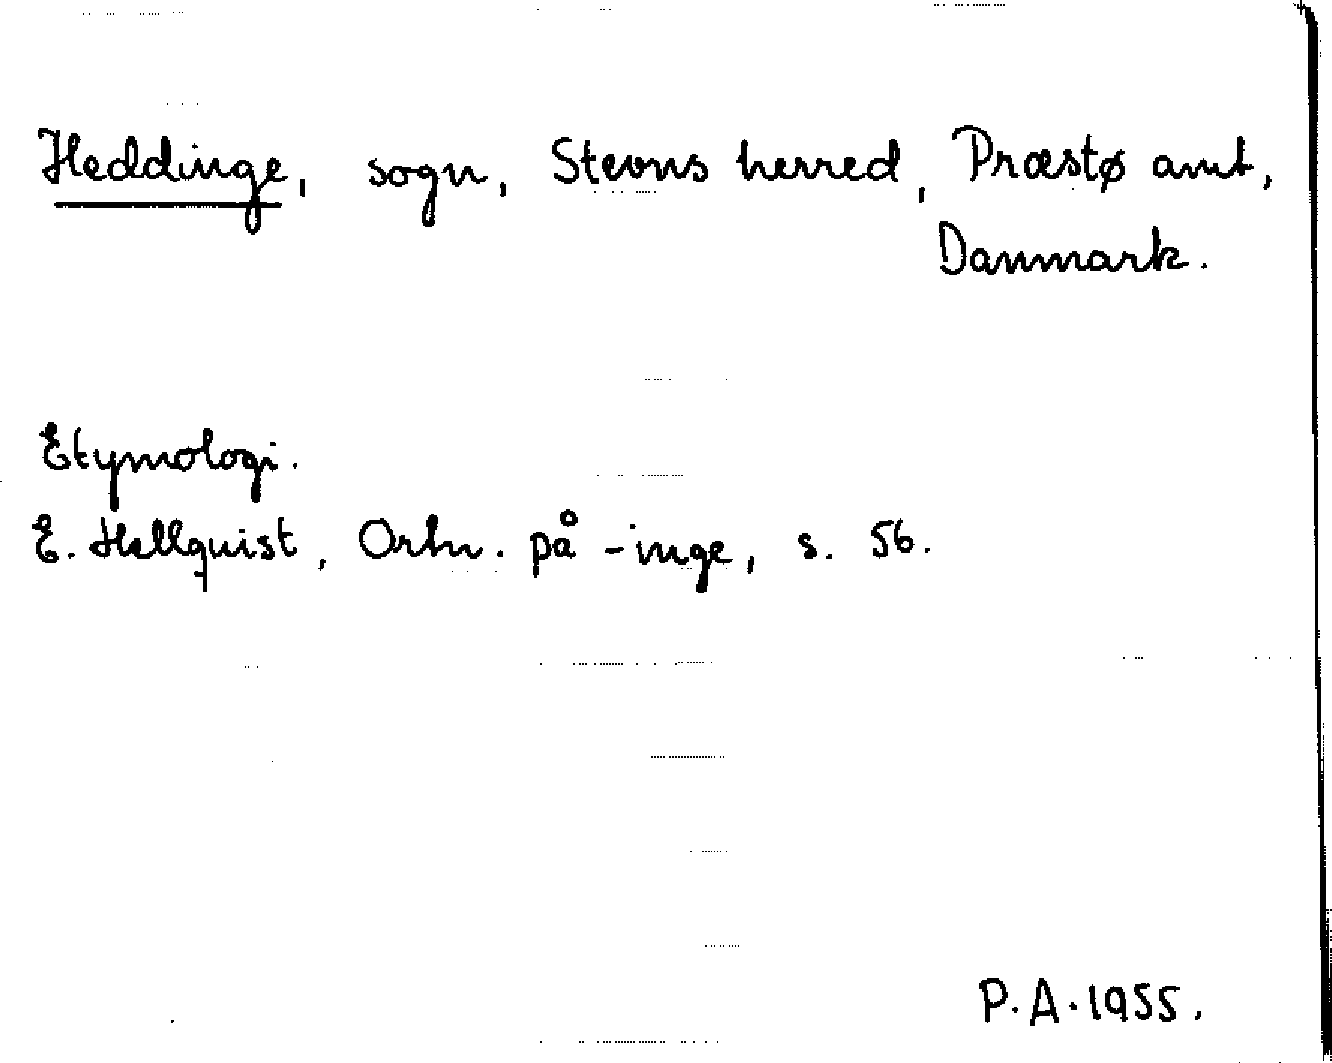 Heddinge, sogn, Stevns herred, Præstø amt,
Danmark.
Etymologi.
E. Hellquist, Ortn. på -inge, s. 56.
P.A. 1955.